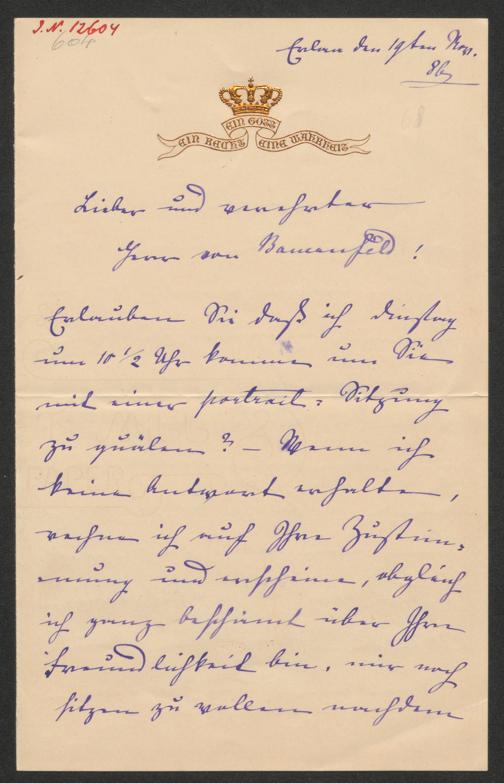 J. N. 12604
604
Erlau den 19ten Nov.
86
EIN GOTT
EIN RECHT EINE WAHRHEIT
Lieber und verehrter
Herr von Bauernfeld!
Erlauben Sie daß ich dinstag
um 10 1/2 Uhr komme um Sie
mit einer portrait = Sitzung
zu quälen? – Wenn ich
keine Antwort erhalte,
rechne ich auf Ihre Zustim=
mung und erscheine, obgleich
ich ganz beschämt über Ihre
Freundlichkeit bin, mir noch
sitzen zu wollen nachdem